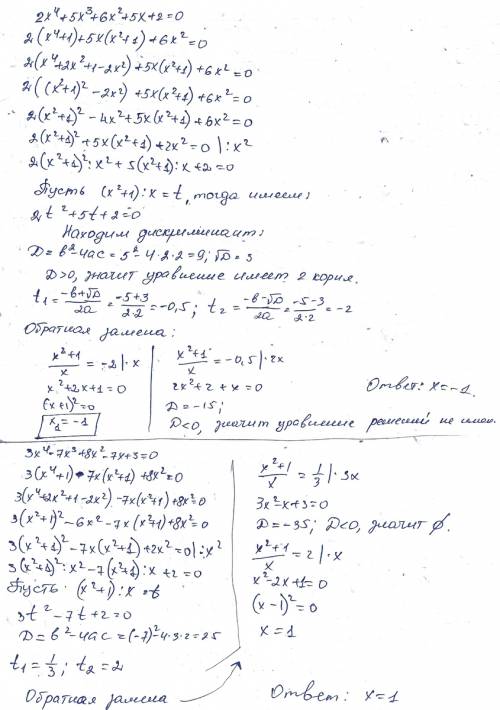 2x⁴+5x³+6x²+5x+2=0
2(x⁴+1)+5x(x²+1)+6x²=0
2(x⁴+2x²+1-2x²)+5x(x²+1)+6x²=0
2((x²+1)²-2x²)+5x(x²+1)+6x²=0
2(x²+1)²-4x²+5x(x²+1)+6x²=0
2(x²+1)²+5x(x²+1)+2x²=0 |:x²
2(x²+1)²:x²+5(x²+1):x+2=0
Пусть (x²+1):x=t, тогда имеем:
2t²+5t+2=0
Находим дискриминант:
D=b²-4ac=5²-4·2·2=9; √D=3
D>0, значит уравнение имеет 2 корня.
t₁=(-b+√D)/2a=(-5+3)/(2·2)=-0,5; t₂=(-b-√D)/2a=(-5-3)/(2·2)=-2
Обратная замена:
(x²+1)/x=-2|·x
x²+2x+1=0
(x+1)²=0
x₁=-1
(x²+1)/x=-0,5|·2x
2x²+2+x=0
D=-15;
D<0, значит уравнение решений не имеет.
Ответ: x=-1.
3x⁴-7x³+8x²-7x+3=0
3(x⁴+1)-7x(x²+1)+8x²=0
3(x⁴+2x²+1-2x²)-7x(x²+1)+8x²=0
3(x²+1)²-6x²-7x(x²+1)+8x²=0
3(x²+1)²-7x(x²+1)+2x²=0|:x²
3(x²+1)²:x²-7(x²+1):x+2=0
Пусть (x²+1):x=t
3t²-7t+2=0
D=b²-4ac=(-7)²-4·3·2=25
t₁=1/3; t₂=2
Обратная замена
(x²+1)/x=1/3|·3x
3x²-x+3=0
D=-35; D<0, значит ∅.
(x²+1)/x=2|·x
x²-2x+1=0
(x-1)²=0
x=1
Ответ: x=1